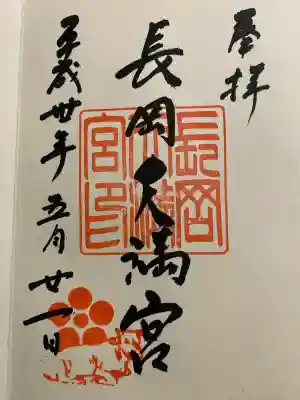 奉拝
長岡天満宮
長岡
天満
宮印
平成卅年五月廿一日